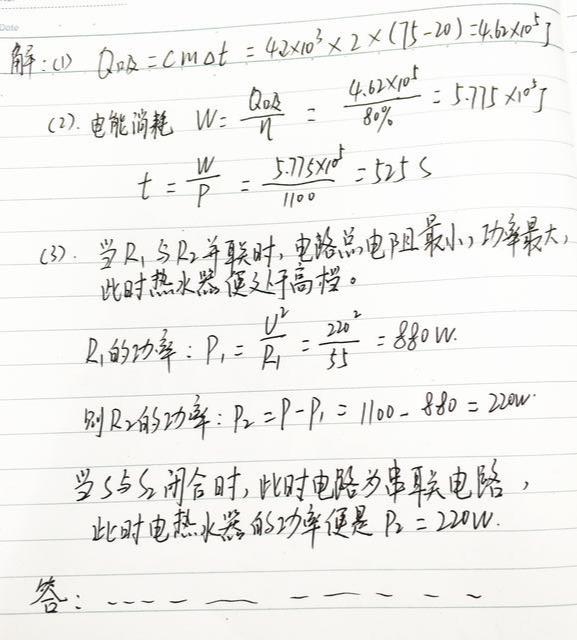 Date
解:(1) Q吸=cmΔt=4.2×10³×2×(75-20)=4.62×10⁵J
(2). 电能消耗 W=Q吸/η=4.62×10⁵/80%=5.775×10⁵J
t=W/P=5.775×10⁵/1100=525s
(3). 当R₁与R₂并联时,电路总电阻最小,功率最大,
此时热水器便处于高档。
R₁的功率:P₁=U²/R₁=220²/55=880W.
则R₂的功率:P₂=P-P₁=1100-880=220W.
当S与S₂闭合时,此时电路为串联电路,
此时电热水器的功率便是P₂=220W.
答: